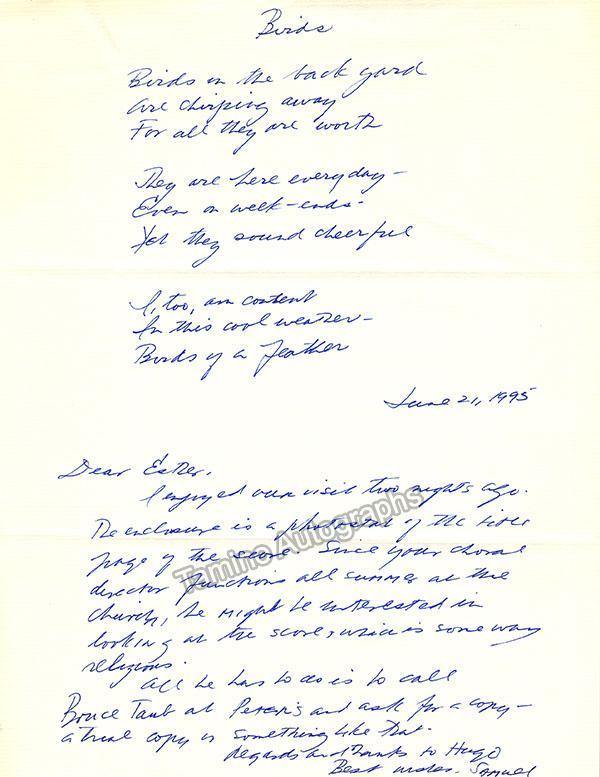 Birds
Birds in the back yard
are chirping away
For all they are worth
They are here everyday -
Even on week-ends -
Yet they sound cheerful
I, too, am content
In this cool weather -
Birds of a feather
June 21, 1995
Dear Esther,
I enjoyed our visit two nights ago.
The enclosure is a photostat of the title
page of the score. Since your choral
director functions all summer at the
church, he might be interested in
looking at the score, which is some way
religious.
All he has to do is to call
Bruce Taub at Peters and ask for a copy -
a trial copy or something like that.
Regards and thanks to Hugo
Best wishes, Samuel
Tamino Autographs